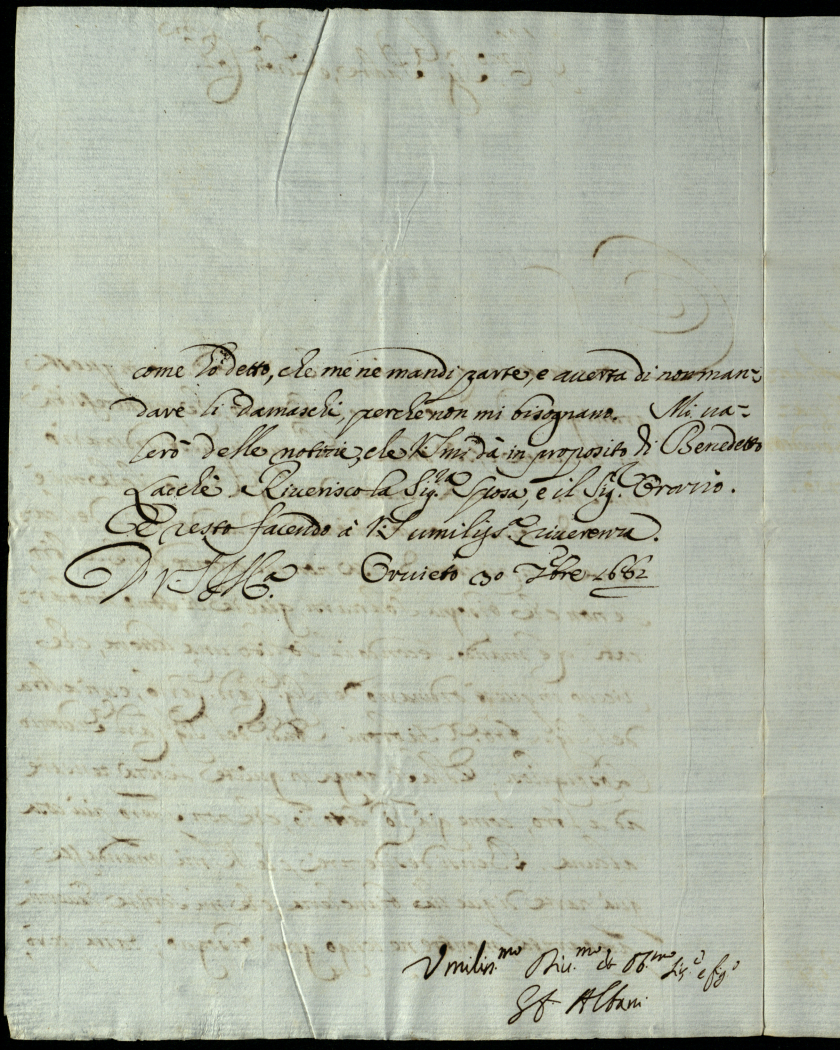 come hò detto, che me ne mandi parte, e auerta di non man=
dare li damaschi, perche non mi bisognano. Mi ua=
lerò delle notitie, che V.S. mi dà in proposito di Benedetto
Lacchè e Riuerisco la Sig.ra Sposa, e il Sig.r
E resto facendo à V.S. umiliss.a riuerenza.
D V.S. Ill.ma Oruieto 30 7bre 1682
Vmiliss.mo Diu.mo et Obb.mo
Gf Albani